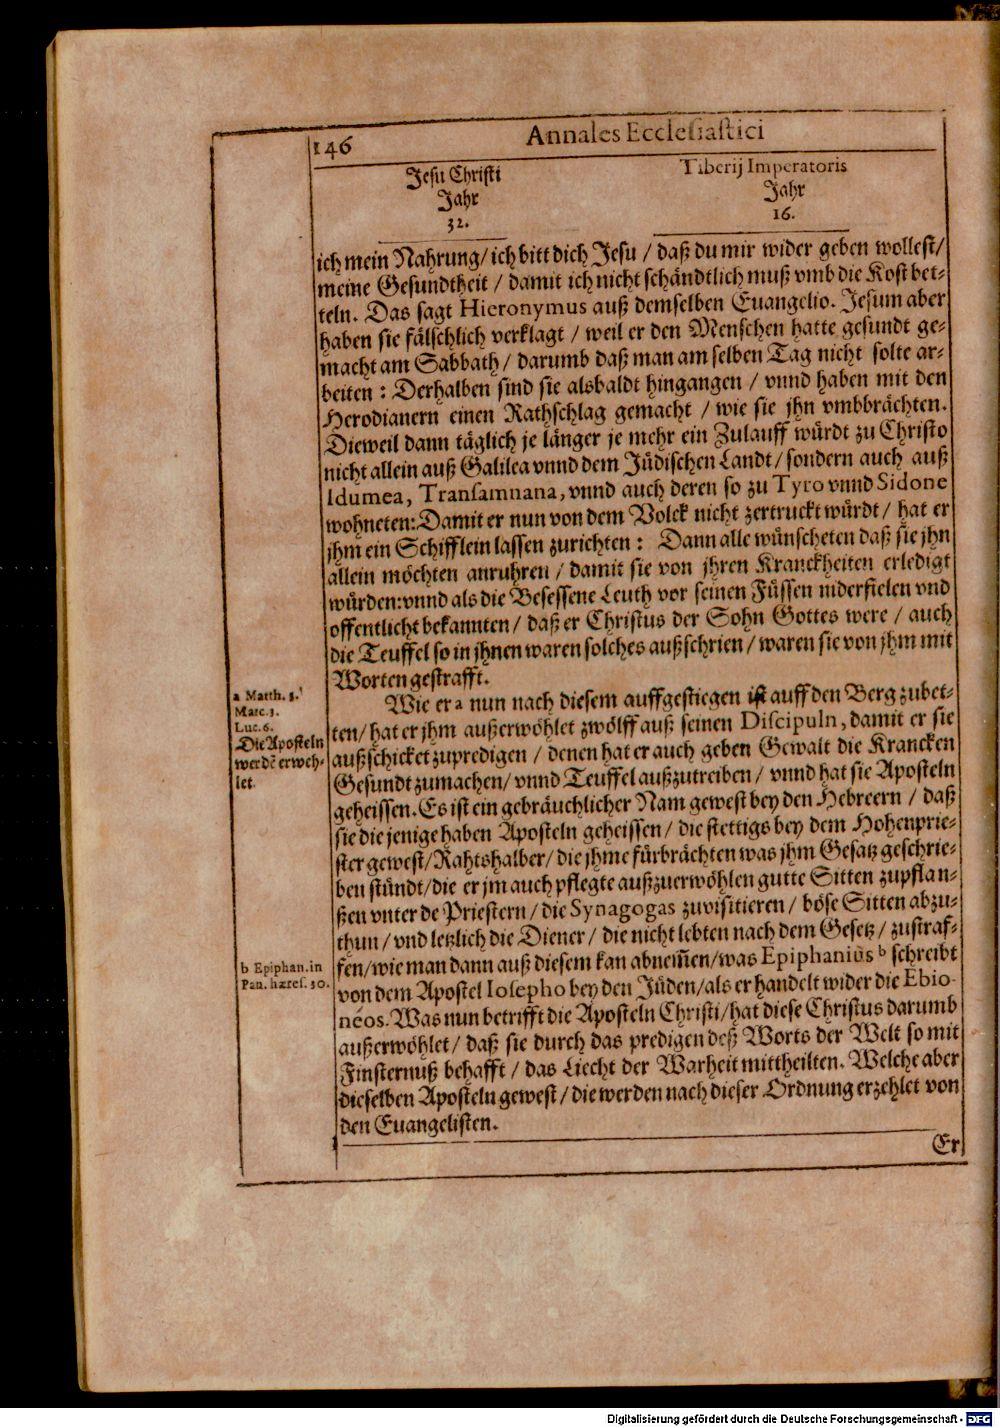 146
Annales Ecclesiastici
Jesu Christi
Jahr
32.
Tiberij Imperatoris
Jahr
16.
ich mein Nahrung/ ich bitt dich Jesu / daß du mir wider geben wollest/
meine Gesundtheit / damit ich nicht schändtlich muß vmb die Kost bet-
teln. Das sagt Hieronymus auß demselben Euangelio. Jesum aber
haben sie fälschlich verklagt / weil er den Menschen hatte gesundt ge-
macht am Sabbath / darumb daß man am selben Tag nicht solte ar-
beiten : Derhalben sind sie alsbaldt hingangen / vnnd haben mit den
Herodianern einen Rathschlag gemacht / wie sie jhn vmbbrächten.
Dieweil dann täglich je länger je mehr ein Zulauff würdt zu Christo
nicht allein auß Galilea vnnd dem Jüdischen Landt/ sondern auch auß
Idumea, Transamnana, vnnd auch deren so zu Tyro vnnd Sidone
wohneten: Damit er nun von dem Volck nicht zertruckt würdt / hat er
jhm ein Schifflein lassen zurichten : Dann alle wünscheten daß sie jhn
allein möchten anruhren / damit sie von jhren Kranckheiten erledigt
würden: vnnd als die Besessene Leuth vor seinen Füssen niderfielen vnd
offentlicht bekannten / daß er Christus der Sohn Gottes were / auch
die Teuffel so in jhnen waren solches außschrien / waren sie von jhm mit
Worten gestrafft.
Wie er a nun nach diesem auffgestiegen ist auff den Berg zubet-
ten/ hat er jhm außerwöhlet zwölff auß seinen Discipuln, damit er sie
außschicket zupredigen / denen hat er auch geben Gewalt die Krancken
Gesundt zumachen/ vnnd Teuffel außzutreiben / vnnd hat sie Aposteln
geheissen. Es ist ein gebräuchlicher Nam gewest bey den Hebreern / daß
sie die jenige haben Aposteln geheissen / die stettigs bey dem Hohenprie-
ster gewest/ Rahtshalber/ die jhme fürbrächten was jhm Gesatz geschrie-
ben stündt/ die er jm auch pflegte außzuerwöhlen gutte Sitten zupflan-
ßen vnter de Priestern / die Synagogas zuvisitieren / böse Sitten abzu-
thun / vnd letzlich die Diener / die nicht lebten nach dem Gesetz / zustraf-
fen/ wie man dann auß diesem kan abnem̃en/ was Epiphanius b schreibt
von dem Apostel Iosepho bey den Jüden/ als er handelt wider die Ebio-
néos. Was nun betrifft die Aposteln Christi/ hat diese Christus darumb
außerwöhlet / daß sie durch das predigen deß Worts der Welt so mit
Finsternuß behafft / das Liecht der Warheit mittheilten. Welche aber
dieselben Aposteln gewest / die werden nach dieser Ordnung erzehlet von
den Euangelisten.
Er
a Matth. 5.
Marc. 3.
Luc. 6.
Die Aposteln
werdẽ erweh-
let.
b Epiphan. in
Pan. hæres. 30.
Digitalisierung gefördert durch die Deutsche Forschungsgemeinschaft - DFG